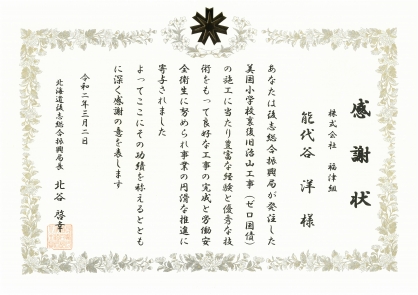 感謝状
株式会社 福津組
能代谷 洋 様
あなたは後志総合振興局が発注した
美国小学校裏復旧治山工事（ゼロ国債）
の施工に当たり豊富な経験と優秀な技
術をもって良好な工事の完成と労働安
全衛生に努められ事業の円滑な推進に
寄与されました
よってここにその功績を称えるととも
に深く感謝の意を表します
令和二年三月二日
北海道後志総合振興局長 北谷 啓幸